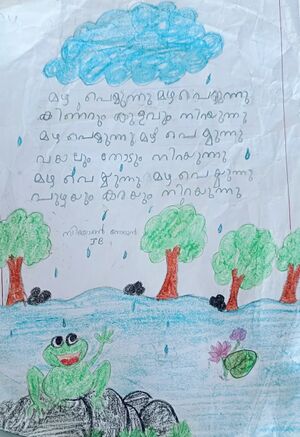 മഴ പെയ്യുന്നു മഴ പെയ്യുന്നു
കിണറും കുളവും നിറയുന്നു
മഴ പെയ്യുന്നു മഴ പെയ്യുന്നു
വയലും തോടും നിറയുന്നു
മഴ പെയ്യുന്നു മഴ പെയ്യുന്നു
പുഴയും കരയും നിറയുന്നു